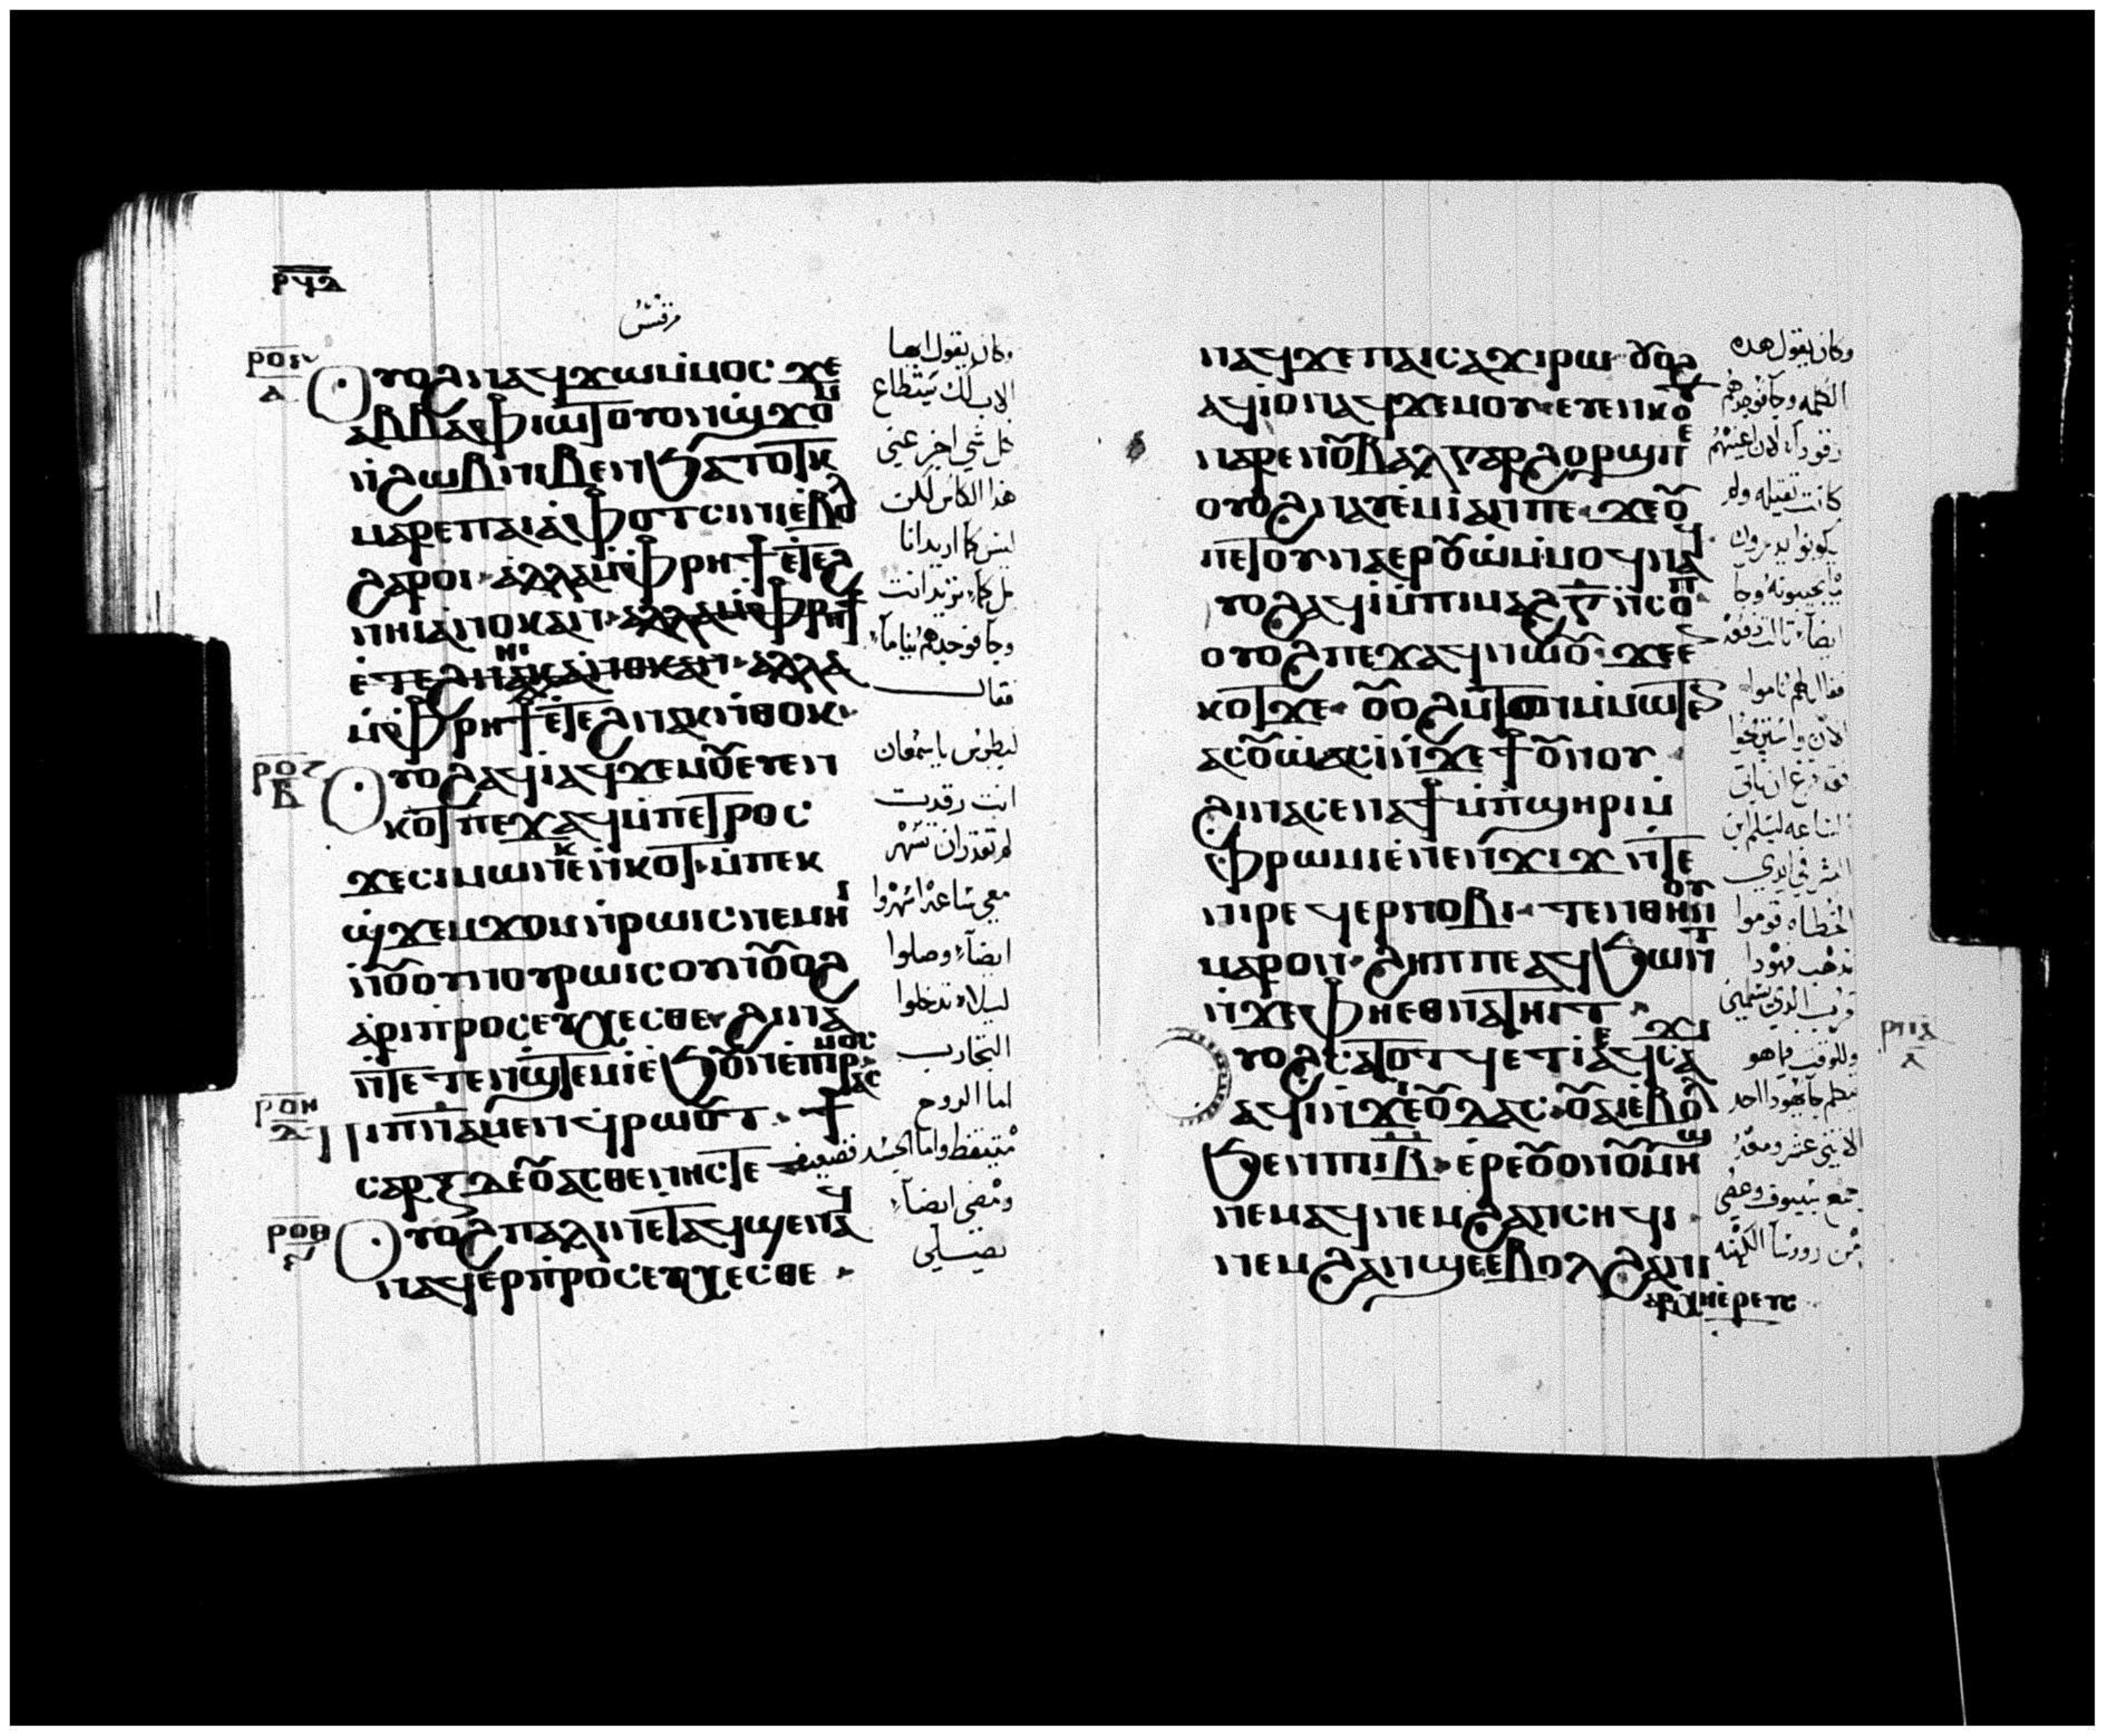 ⲣϥⲇ
مرقس
ⲟⲩⲟϩ ⲛⲁϥϫⲱ ⲙ̇ⲙⲟⲥ ϫⲉ
ⲁⲃⲃⲁ ⲫⲓⲱⲧ ⲟⲩⲟⲛ ϣϫⲟⲙ
ⲛ̇ϩⲱⲃ ⲛⲓⲃⲉⲛ ϧⲁⲧⲟⲧⲕ
ⲙⲁⲣⲉ ⲡⲁⲓⲁⲫⲟⲧ ⲥⲓⲛⲓ ⲉⲃⲟⲗ
ϩⲁⲣⲟⲓ ⲁⲗⲗⲁ ⲙ̇ⲫⲣⲏϯ ⲉⲧⲉϩ
ⲛⲏⲓ ⲁⲛⲟⲕ ⲁⲛ ⲁⲗⲗⲁ ⲙ̇ⲫⲣⲏϯ
ⲉ̇ⲧⲉϩⲛⲏⲓ ⲁⲛⲟⲕ ⲁⲛ ⲁⲗⲗⲁ
ⲙ̇ⲫⲣⲏϯ ⲉⲧⲉϩⲛⲁⲕ ⲛ̇ⲑⲟⲕ
ⲟⲩⲟϩ ⲁϥⲓ ⲁϥϫⲉⲙⲟⲩ ⲉⲩⲉⲛ
ⲕⲟⲧ ⲡⲉϫⲁϥ ⲙ̇ⲡⲉⲧⲣⲟⲥ
ϫⲉ ⲥⲓⲙⲱⲛ ⲕⲉⲛⲕⲟⲧ ⲙ̇ⲡⲉⲕ
ϣ̇ϫⲉⲙϫⲟⲙ ⲛ̇ⲣⲱⲓⲥ ⲛⲉⲙⲏⲓ
ⲛ̇ⲟⲩⲟⲩⲛⲟⲩ ⲣⲱⲓⲥ ⲟⲩⲛ ⲟⲩⲟϩ
ⲁⲣⲓⲡⲣⲟⲥⲉⲩⲭⲉⲥⲑⲉ ϩⲓⲛⲁ
ⲛ̇ⲧⲉⲧⲉⲛϣⲧⲉⲙⲓ ⲉϧⲟⲩⲛ ⲉⲡⲓⲣⲁⲥⲙⲟⲥ
ⲡⲓⲡⲛⲁ ⲙⲉⲛ ϥⲣⲱⲟⲩⲧ ϯ
ⲥⲁⲣⲝ ⲇⲉ ⲟⲩⲁⲥⲑⲉⲛⲏⲥ ⲧⲉ
ⲟⲩⲟϩ ⲡⲁⲗⲓⲛ ⲉⲧⲁϥϣⲉⲛⲁϥ
ⲛⲁϥⲉⲣⲡ̇ⲣⲟⲥⲉⲩⲭⲉⲥⲑⲉ
وكان يقول ايها
الاب لك يستطاع
كل شي اجز عني
هذا الكاس لكن
ليس كما اريد انا
بل كما تريد انت
وجا فوجدهم نياما
فقال
لبطرس يا سمعان
انت رقدت
لم تقدر ان تسهر
معي ساعة اسهروا
ايضا وصلوا
ليلا تدخلوا
التجارب
اما الروح
متيقظ واما الجسد فضعيف
ومضى ايضا
يصلي
ⲛⲁϥϫⲉ ⲡⲁⲓⲥⲁϫⲓ ⲣⲱ ⲟⲩⲟϩ
ⲁϥⲓ ⲟⲛ ⲁϥϫⲉⲙⲟⲩ ⲉⲩⲉⲛⲕⲟⲧ
ⲛⲁⲣⲉ ⲛⲟⲩⲃⲁⲗ ⲅⲁⲣ ϩⲟⲣϣ ⲡⲉ
ⲟⲩⲟϩ ⲛⲁⲩⲉⲙⲓ ⲁⲛ ⲡⲉ ϫⲉ ⲟⲩ
ⲡⲉⲧⲟⲩⲛⲁⲉⲣⲟⲩⲱ ⲙ̇ⲙⲟϥ ⲛⲁϥ
ⲟⲩⲟϩ ⲁϥⲓ ⲙ̇ⲡⲓⲙⲁϩ ⲅ̅ ⲛ̇ⲥⲟⲡ
ⲟⲩⲟϩ ⲡⲉϫⲁϥ ⲛⲱⲟⲩ ϫⲉ ⲉ
ⲕⲟⲧ ϫⲉ ⲟⲩⲟϩ ⲙ̇ⲧⲟⲛ ⲙ̇ⲙⲱⲧⲉⲛ
ⲁⲥⲟⲩⲱ ⲁⲥⲓ ⲛ̇ϫⲉ ϯⲟⲩⲛⲟⲩ
ϩⲓⲛⲁ ⲥⲉⲛⲁϯ ⲙ̇ⲡ̇ϣⲏⲣⲓ ⲙ̇
ⲫⲣⲱⲙⲓ ⲉ̇ⲛⲉⲛϫⲓϫ ⲛ̇ⲧⲉ
ⲛⲓⲣⲉϥⲉⲣⲛⲟⲃⲓ ⲧⲉⲛⲑⲏⲛⲟⲩ
ⲙⲁⲣⲟⲛ ϩⲏⲡⲡⲉ ⲁϥϧⲱⲛⲧ
ⲛ̇ϫⲉ ⲫⲏⲉⲑⲛⲁⲧⲏⲓⲧ
ⲟⲩⲟϩ ⲥⲁⲧⲟⲧϥ ⲉⲧⲓ ⲉϥⲥⲁϫⲓ
ⲁϥⲓ ⲛ̇ϫⲉ ⲓⲟⲩⲇⲁⲥ ⲟⲩⲁⲓ ⲉⲃⲟⲗ
ϧⲉⲛ ⲡⲓⲓ̅ⲃ̅ ⲉⲣⲉ ⲟⲩⲟⲛ ⲟⲩⲙⲏϣ
ⲛⲉⲙⲁϥ ⲛⲉⲙ ϩⲁⲛⲥⲏϥⲓ
ⲛⲉⲙ ϩⲁⲛϣⲉ ⲉⲃⲟⲗ ϩⲁ ⲛⲓ
ⲁⲣⲭⲏⲉⲣⲉⲩⲥ
وكان يقول هذه
الكلمه وجا فوجدهم
رقودا لان اعينهم
كانت ثقيله ولم
يكونوا يدرون
ما يجيبونه وجا
ايضا ثالث دفعه
فقال لهم ناموا
الان واستريحوا
الساعه ليسلم ابن
البشر في ايدي
الخطاه قوموا
نذهب فهوذا
قرب الذي يسلمني
وللوقت فيما هو
يتكلم جا يهودا احد
الاثني عشر ومعه
جمع بسيوف وعصي
من روسا الكهنه